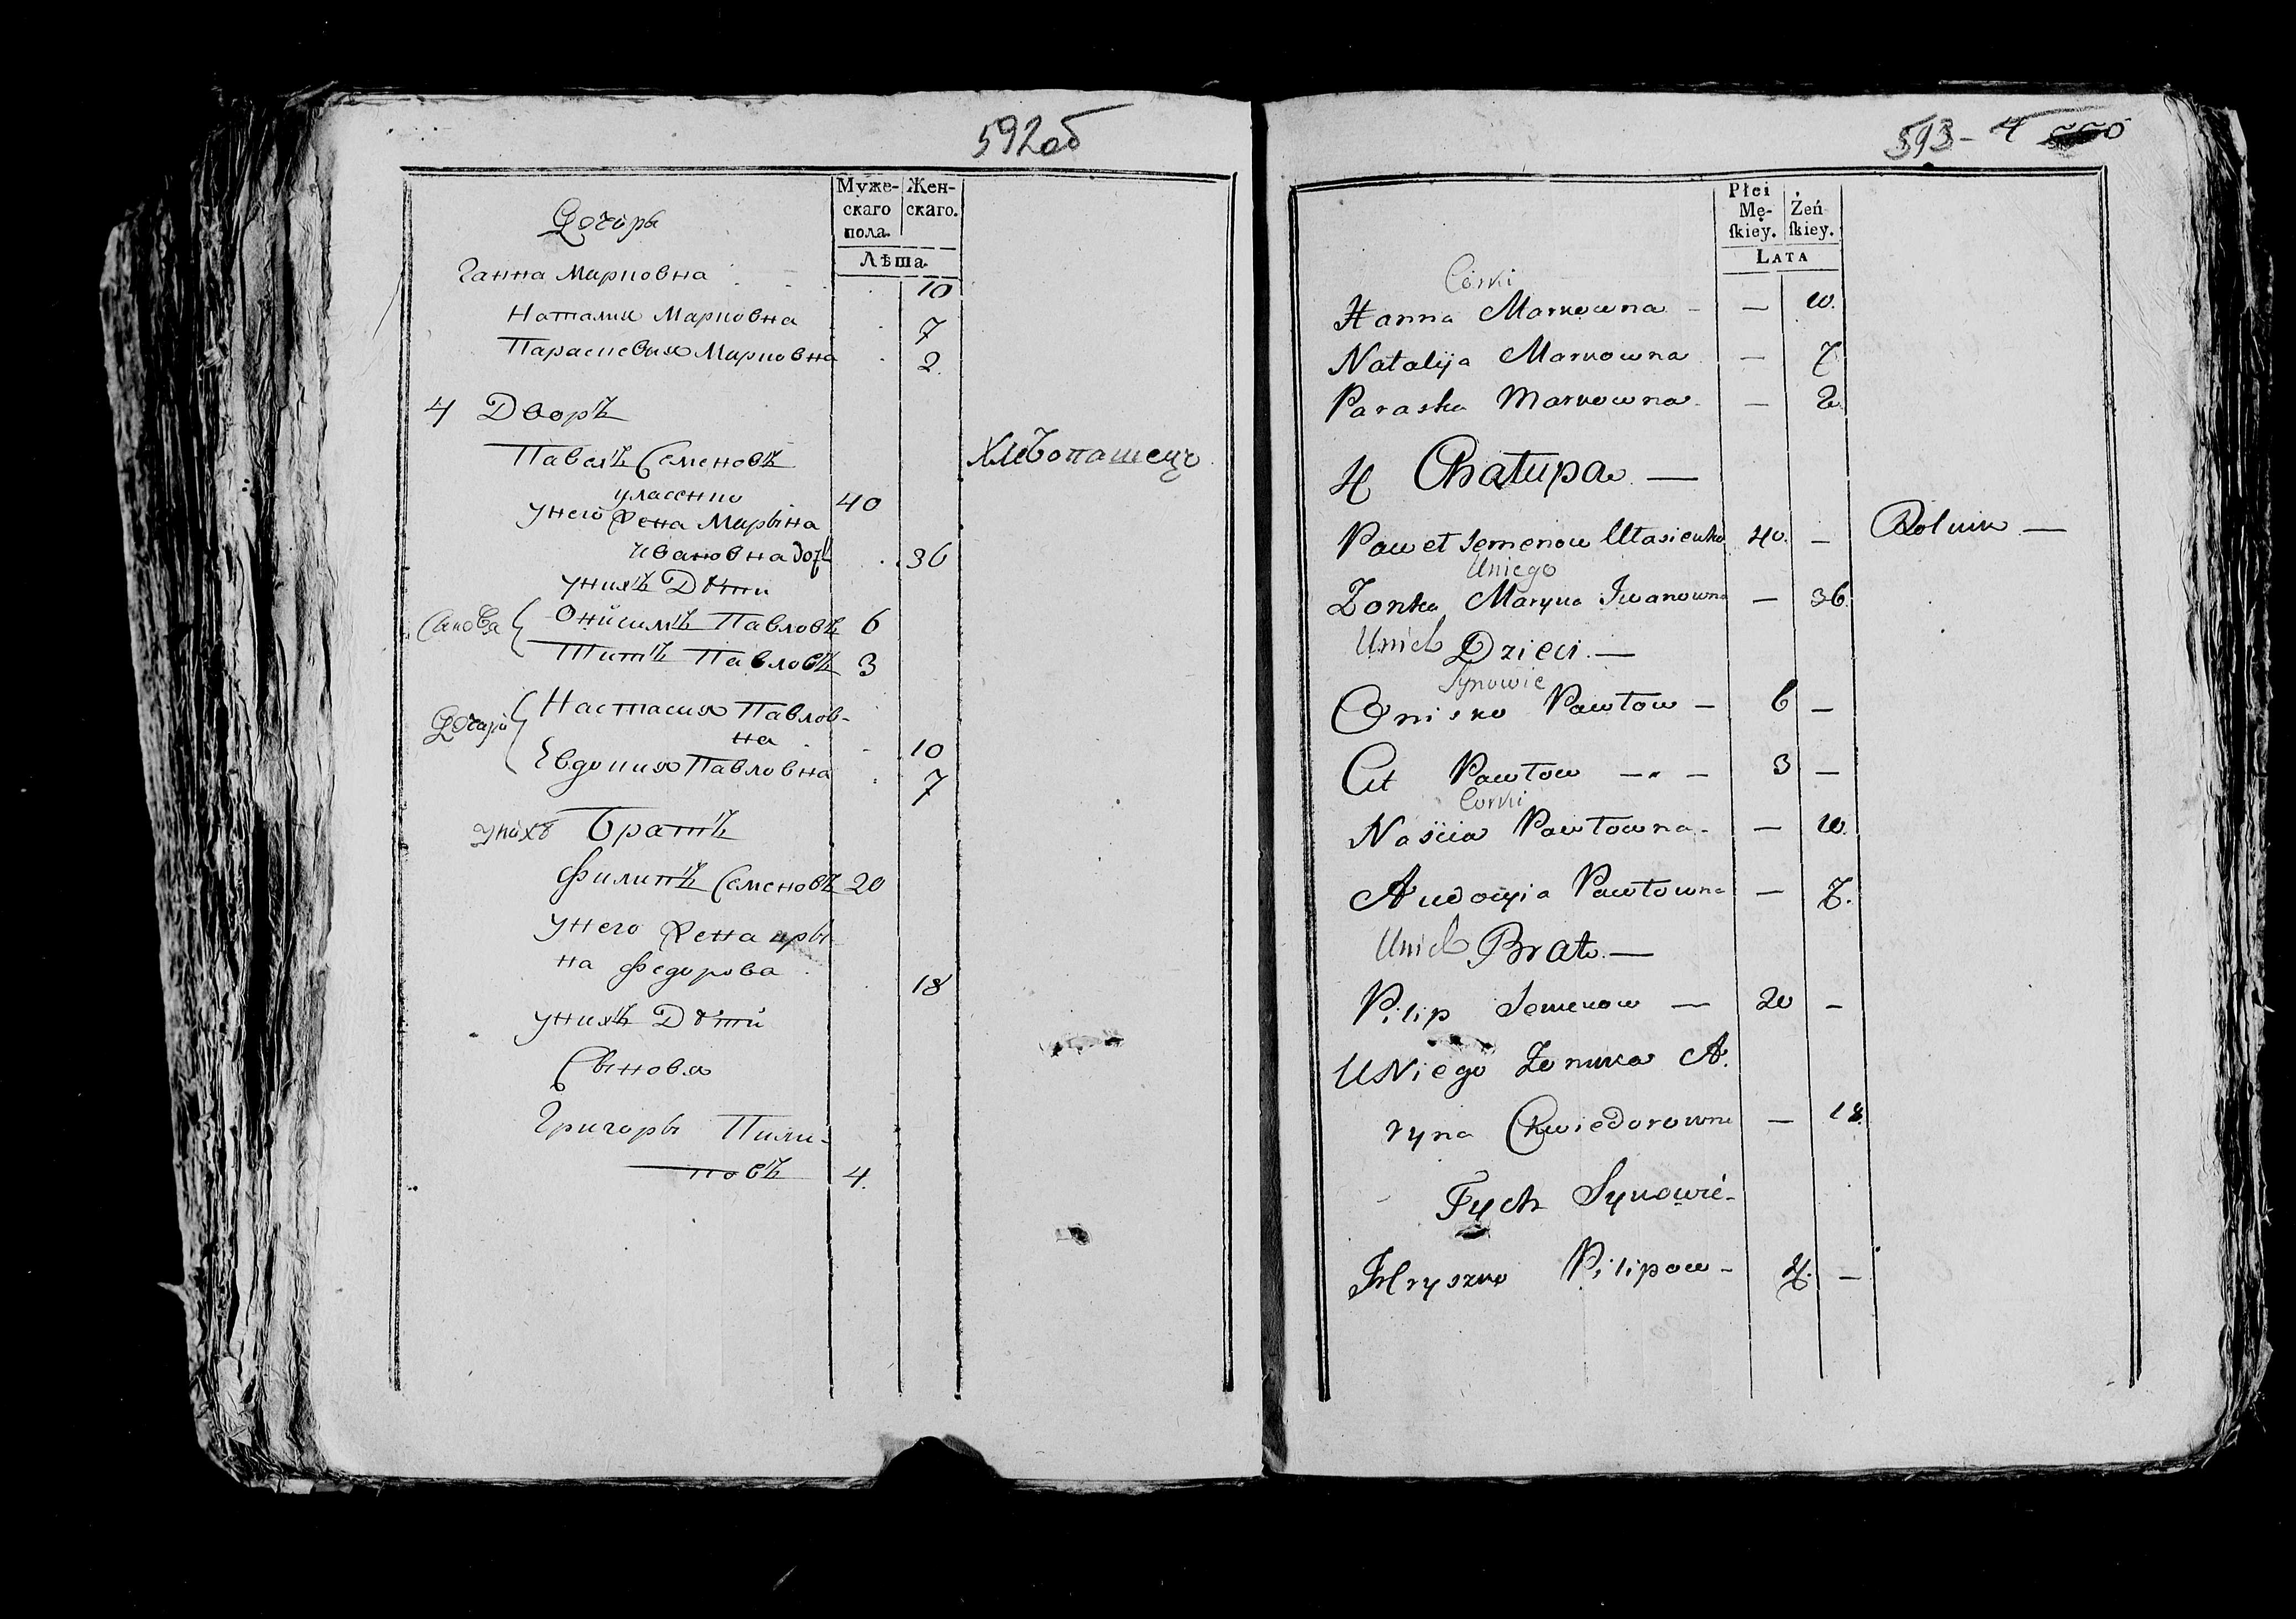 592об
Муже- Жен-
скаго скаго.
пола.
Лѣта.
Дочери
Ганна Марковна 10
Наталия Марковна 7
Параскевия Марковна 2.
4 Дворъ
Павелъ Семеновъ Хлебопашецъ
40
У него Жена Марына
Ивановна доч 36
у нихъ Дѣти
Сынова Онисимъ Павловъ 6
Титъ Павловъ 3
Дочери Настасия Павлов-
на 10
Евдокия Павловна 7
у нихъ Братъ
Филипъ Семеновъ 20
У него Жена Ары-
на Федорова 18
у нихъ Дѣти
Сынова
Григоры Пили-
повъ 4.
593 - 4
Płci
Mę- Żeń
ſkiey. ſkiey.
LATA
Córki
Hanna Markowna - — 10.
Natalija Markowna — 7
Paraska Markowna — 2.
4 Chałupa —
Paweł Semenow Ułasienko 40. — Rolnik —
Uniego
Żonka Maryna Iwanowna — 36.
Unich Dzieci —
Synowie
Onisko Pawłow — 6 —
Cit Pawłow — 3 —
Corki
Naścia Pawłowna — 10.
Audocyia Pawłowna — 7.
Unich Brat —
Pilip Semenow — 20 —
U Niego Żonka A.
ryna Chwiedorowna — 18.
Tych Synowie -
Hryszko Pilipow - 4. —